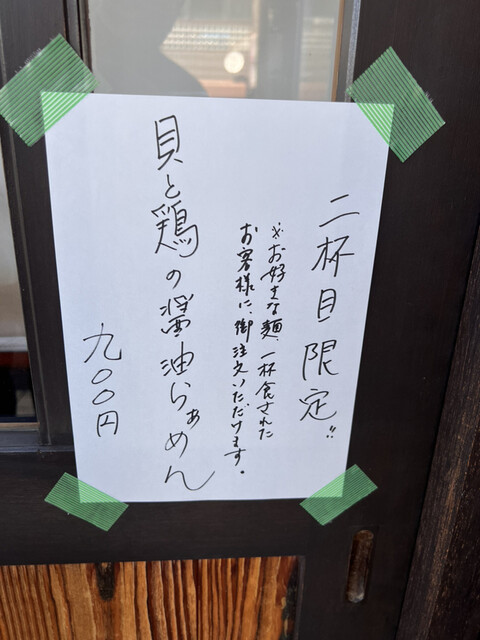 二杯目限定!!
※お好きな麺、一杯食された
お客様に、御注文いただけます。
貝と鶏の醤油らぁめん
九〇〇円